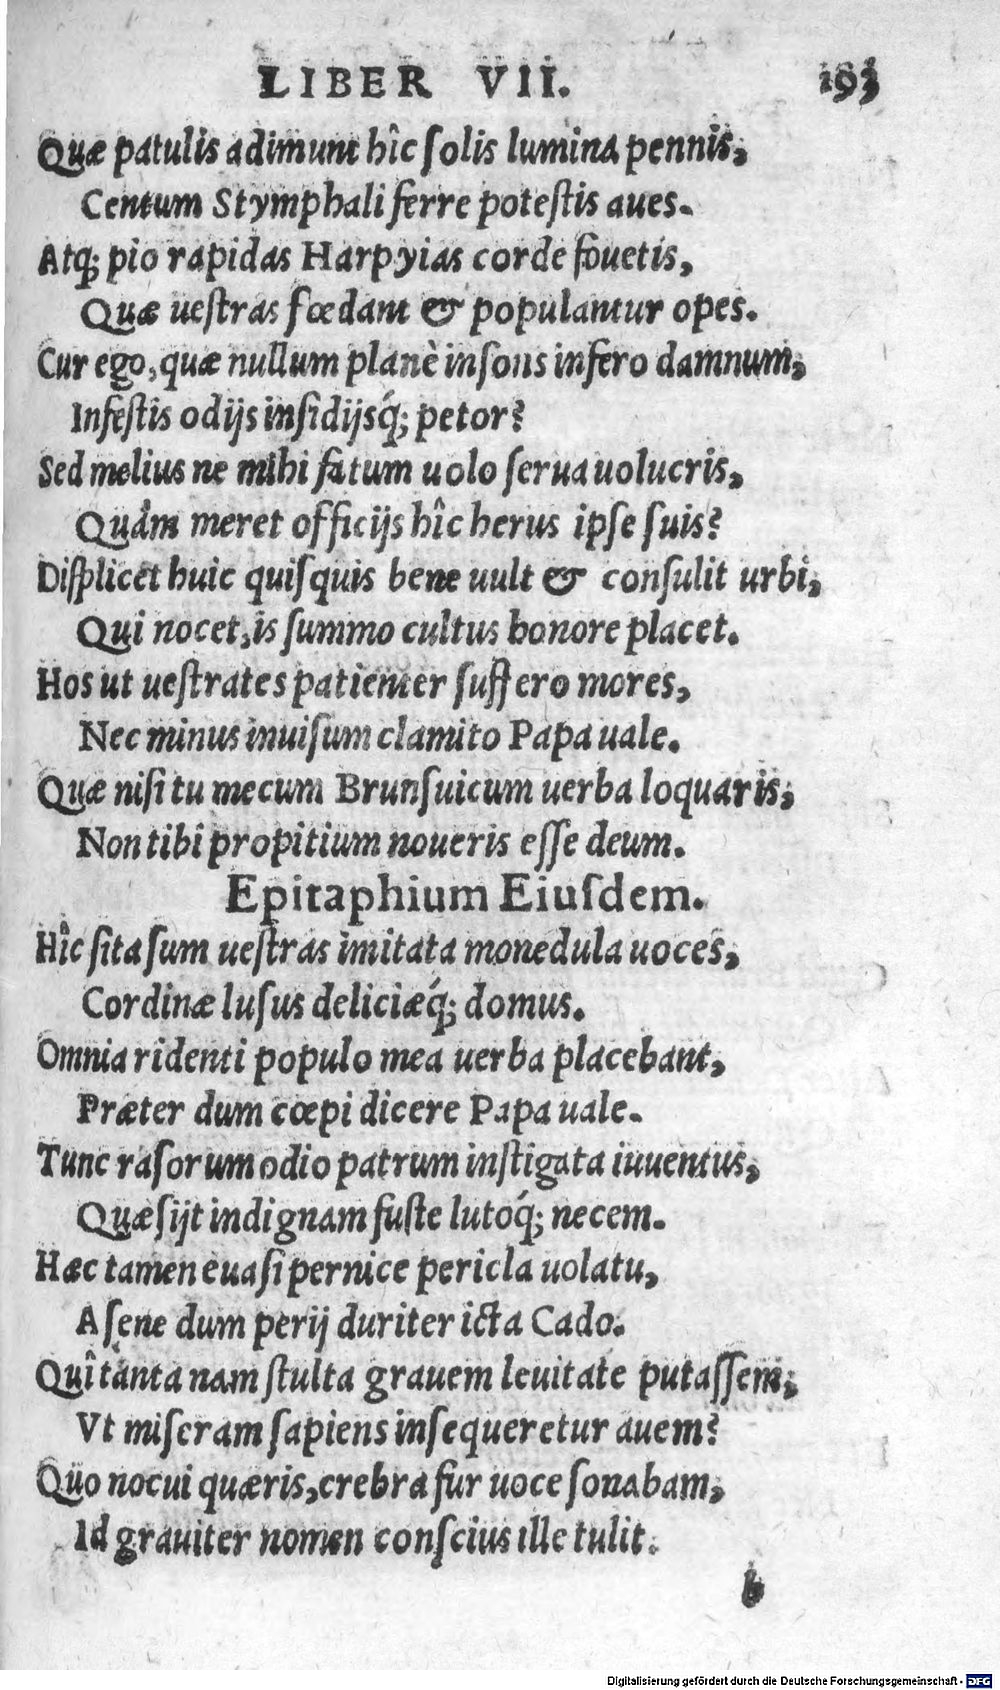 LIBER VII. 193
Quæ patulis adimunt hîc ſolis lumina pennis,
Centum Stymphali ferre poteſtis aues.
Atq; pio rapidas Harpyias corde fouetis,
Quæ ueſtras fœdant & populantur opes.
Cur ego, quæ nullum planè inſons infero damnum,
Infeſtis odijs inſidijsq́; petor?
Sed melius ne mihi fatum uolo ſerua uolucris,
Quàm meret officijs hîc herus ipſe ſuis?
Diſplicet huic quiſquis bene uult & conſulit urbi,
Qui nocet, is ſummo cultus honore placet.
Hos ut ueſtrates patienter ſuffero mores,
Nec minus inuiſum clamito Papa uale.
Quæ niſi tu mecum Brunſuicum uerba loquaris,
Non tibi propitium noueris eſſe deum.
Epitaphium Eiuſdem.
Hîc ſita ſum ueſtras imitata monedula uoces,
Cordinæ luſus deliciæq́; domus.
Omnia ridenti populo mea uerba placebant,
Præter dum cœpi dicere Papa uale.
Tunc raſorum odio patrum inſtigata iuuentus,
Quæſijt indignam fuſte lutoq́; necem.
Hæc tamen euaſi pernice pericla uolatu,
A ſene dum perij duriter icta Cado.
Quî tanta nam ſtulta grauem leuitate putaſſem,
Vt miſeram ſapiens inſequeretur auem?
Quo nocui quæris, crebra fur uoce ſonabam,
Id grauiter nomen conſcius ille tulit.
b
Digitalisierung gefördert durch die Deutsche Forschungsgemeinschaft - DFG